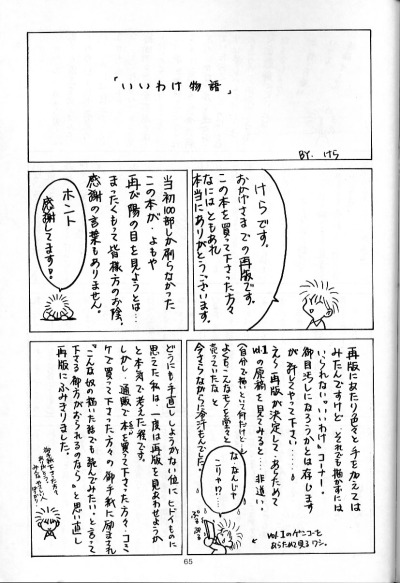 「いいわけ物語」
BY. けら
けらです。
おかげさまでの再版です。
この本を買って下さった方々
なにはともあれ
本当にありがとうございます。
当初100部しか刷らなかった
この本が、よもや
再び陽の目を見ようとは…
まったくもって皆様方のお陰、
感謝の言葉もありません。
ホント
感謝してます!!
再版にあたり色々と手を加えては
みたんですけど、それでも描かずには
いられない"いいわけ"コーナー。
御目汚しになろうかとは存じます
が許してやって下さい……
え〜再版が決定してあらためて
vol.1の原稿を見てみると…非道い。
(自分で描いといて何だけど)
よくもこんなモノを堂々と
売っていたなと
今さらながらに冷汗もんでした。
な なんじゃ
こりゃ!?…
vol.1のゲンコーを
あらためて見るワシ。
どうにも手直ししようがない位にヒドイものに
思えた私は、一度は再版を見あわせようか
と本気で考えた程です。
しかし、通販で本を買って下さった方々・コミ
ケで買って下さった方々の御手紙に励まされ
"こんな奴の描いた話でも読んでみたい。と言って
下さる御方がおられるのなら"と思い直し
再版にふみきりました。
御手紙下さった方々
65